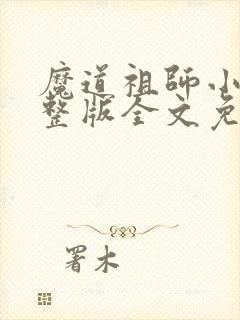 魔道祖師小
整版全文免
署木